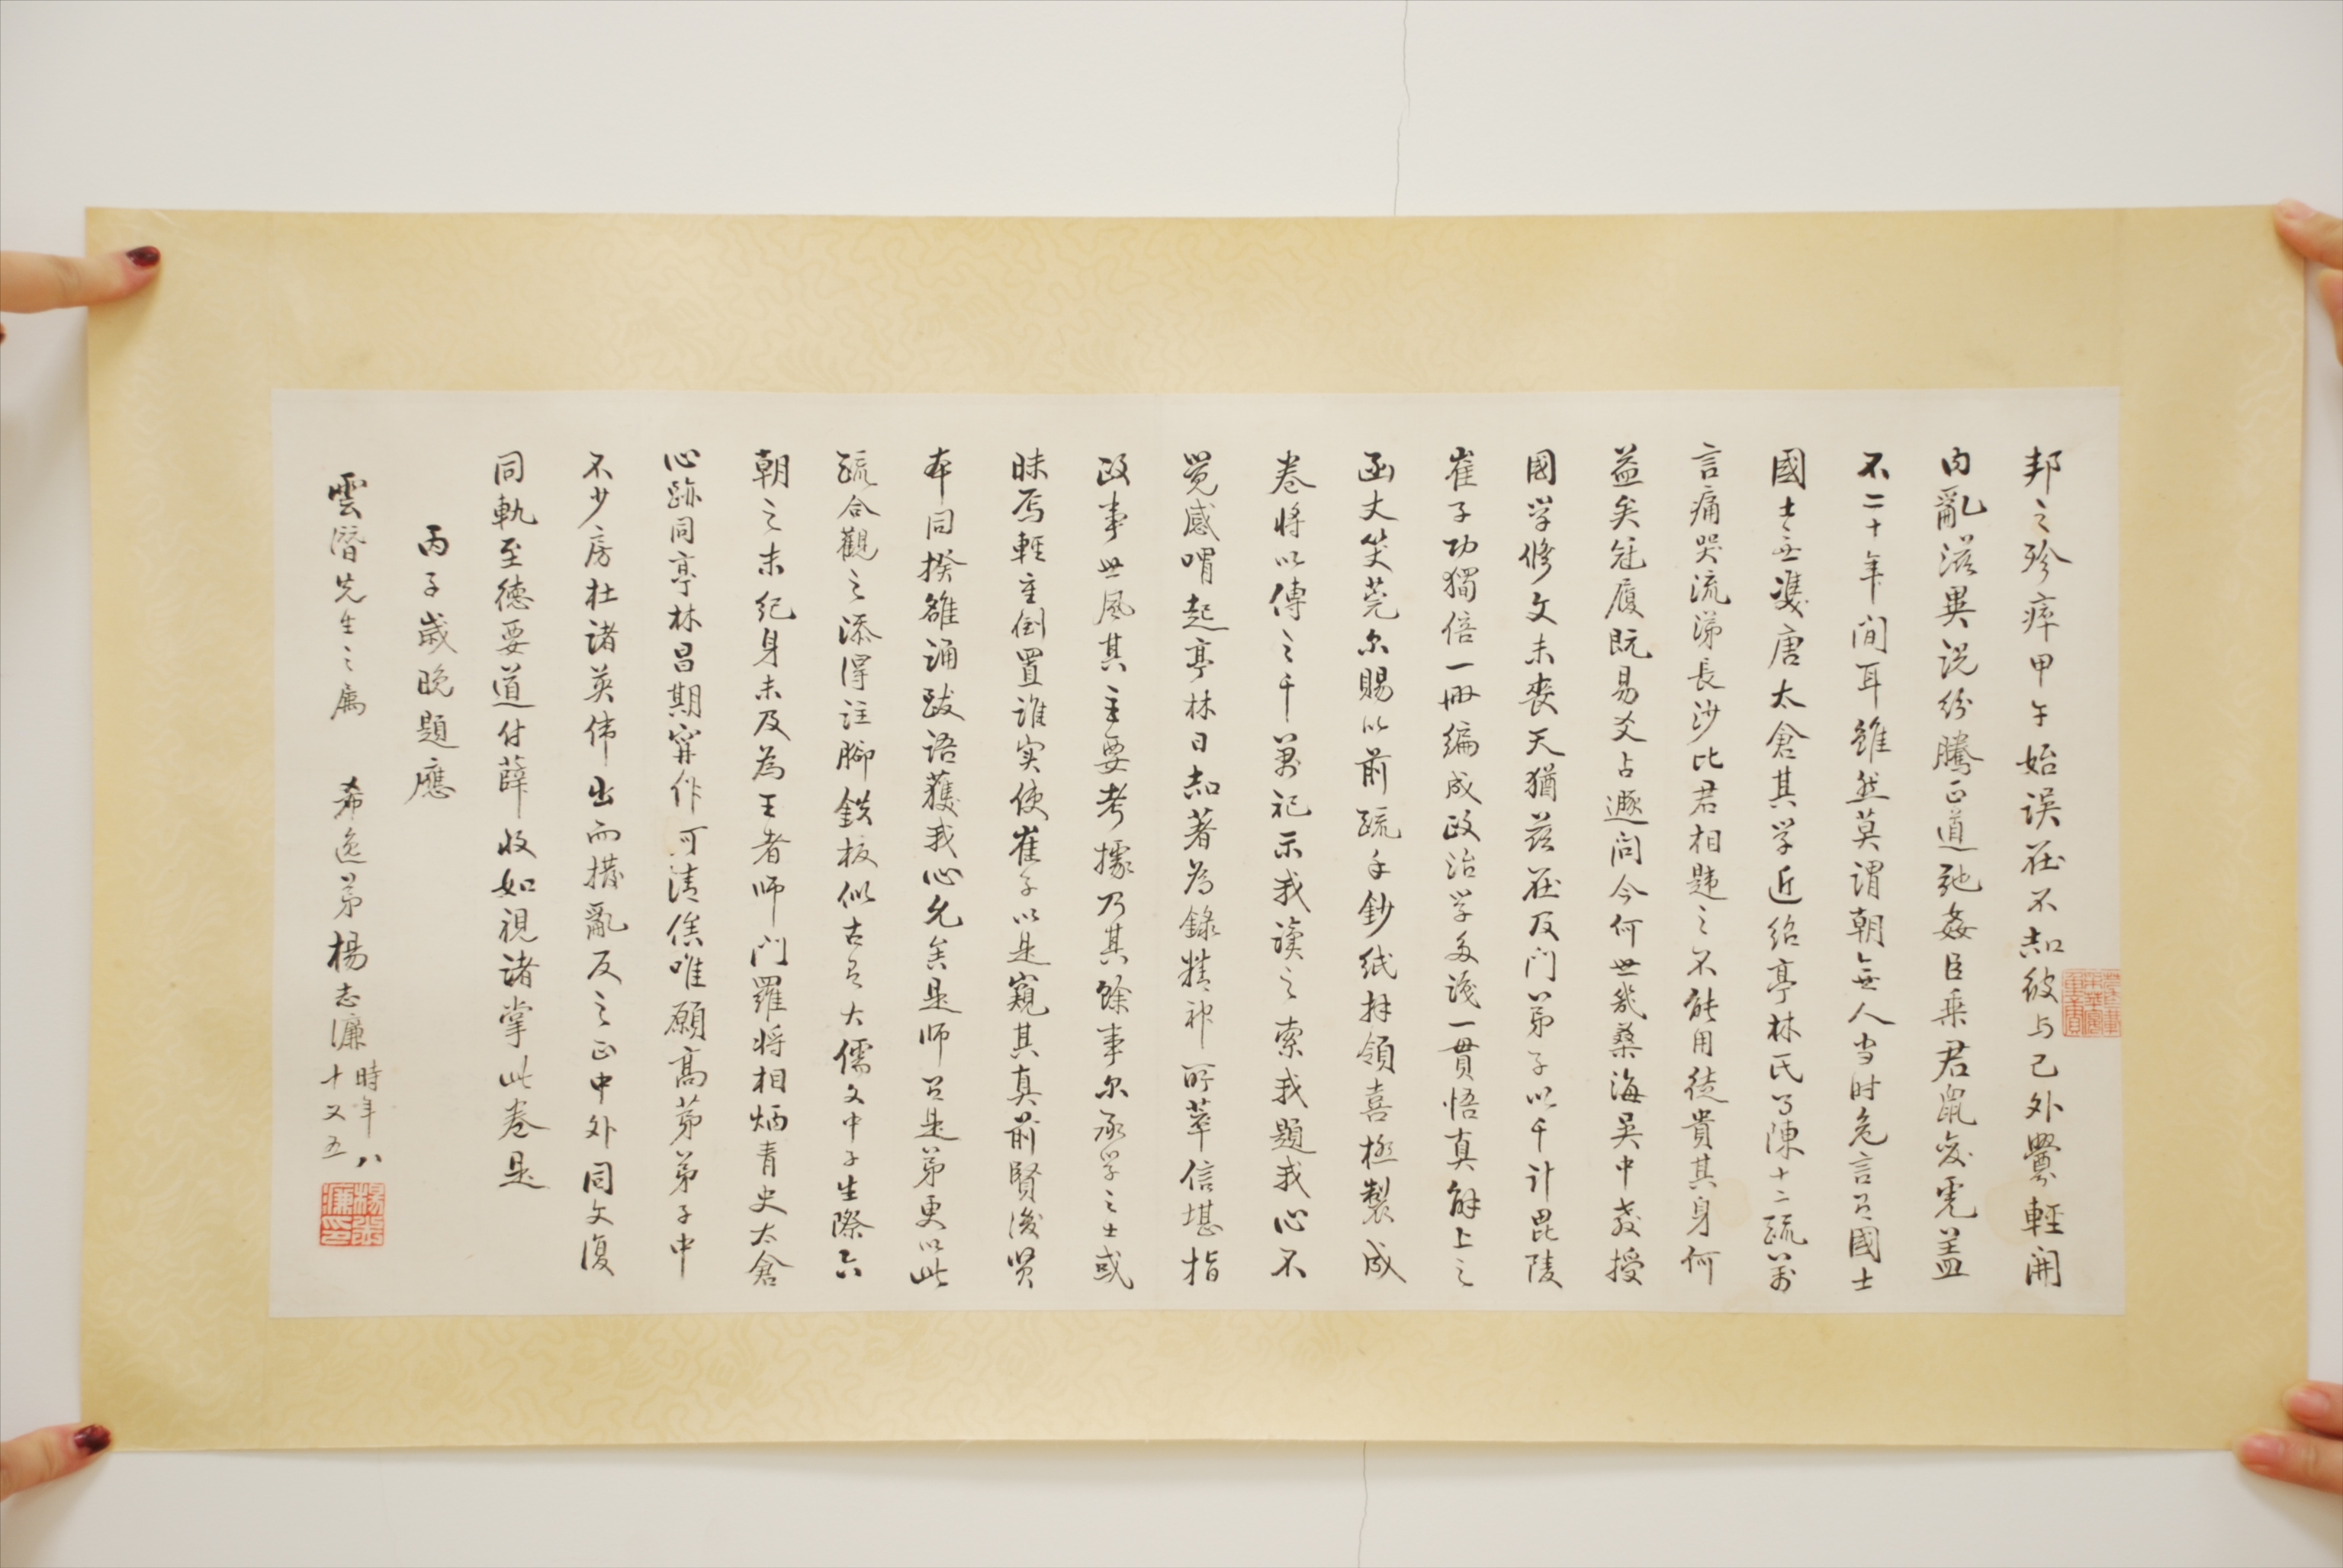 邦之殄瘁甲午始误在不知彼与己外釁輕開
内亂滋異说纷騰正道弛姦臣乘君鼠变虎盖
不二十年間耳雖然莫謂朝無人当时危言有國士
國士無雙唐太倉其学近绍亭林氏曾陳十二疏万
言痛哭流涕長沙比君相韪之不能用徒貴其身何
益矣冠履既易爻占遯问今何世几桑海吴中教授
國学修文未丧天猶兹在及门弟子以千计毘陵
崔子功獨倍一冊编成政治学多識一貫悟真解上之
函丈笑莞尔賜以前疏手鈔纸拜領喜極製成
卷将以傳之千万祀示我读之索我題我心不
觉感喟起亭林日知著为錄精神所萃信堪指
政事世风其主要考據乃其餘事尔承学之士或
昧焉輕重倒置谁实使崔子以是窺其真前賢後贤
本同揆雒诵跋语獲我心允矣是师有是弟更以此
疏合觀之添得註腳鉄板似古有大儒文中子生際六
朝之末纪身未及為王者师门羅将相炳青史太倉
心跡同亭林昌期寧作河清俟唯願高弟弟子中
不少房杜诸英伟出而撥亂反之正中外同文復
同軌至德要道付薛收如視诸掌此卷是
丙子歲晚題應
雲階先生之属 希逸弟楊志濂時年八
十又五
楊志濂印